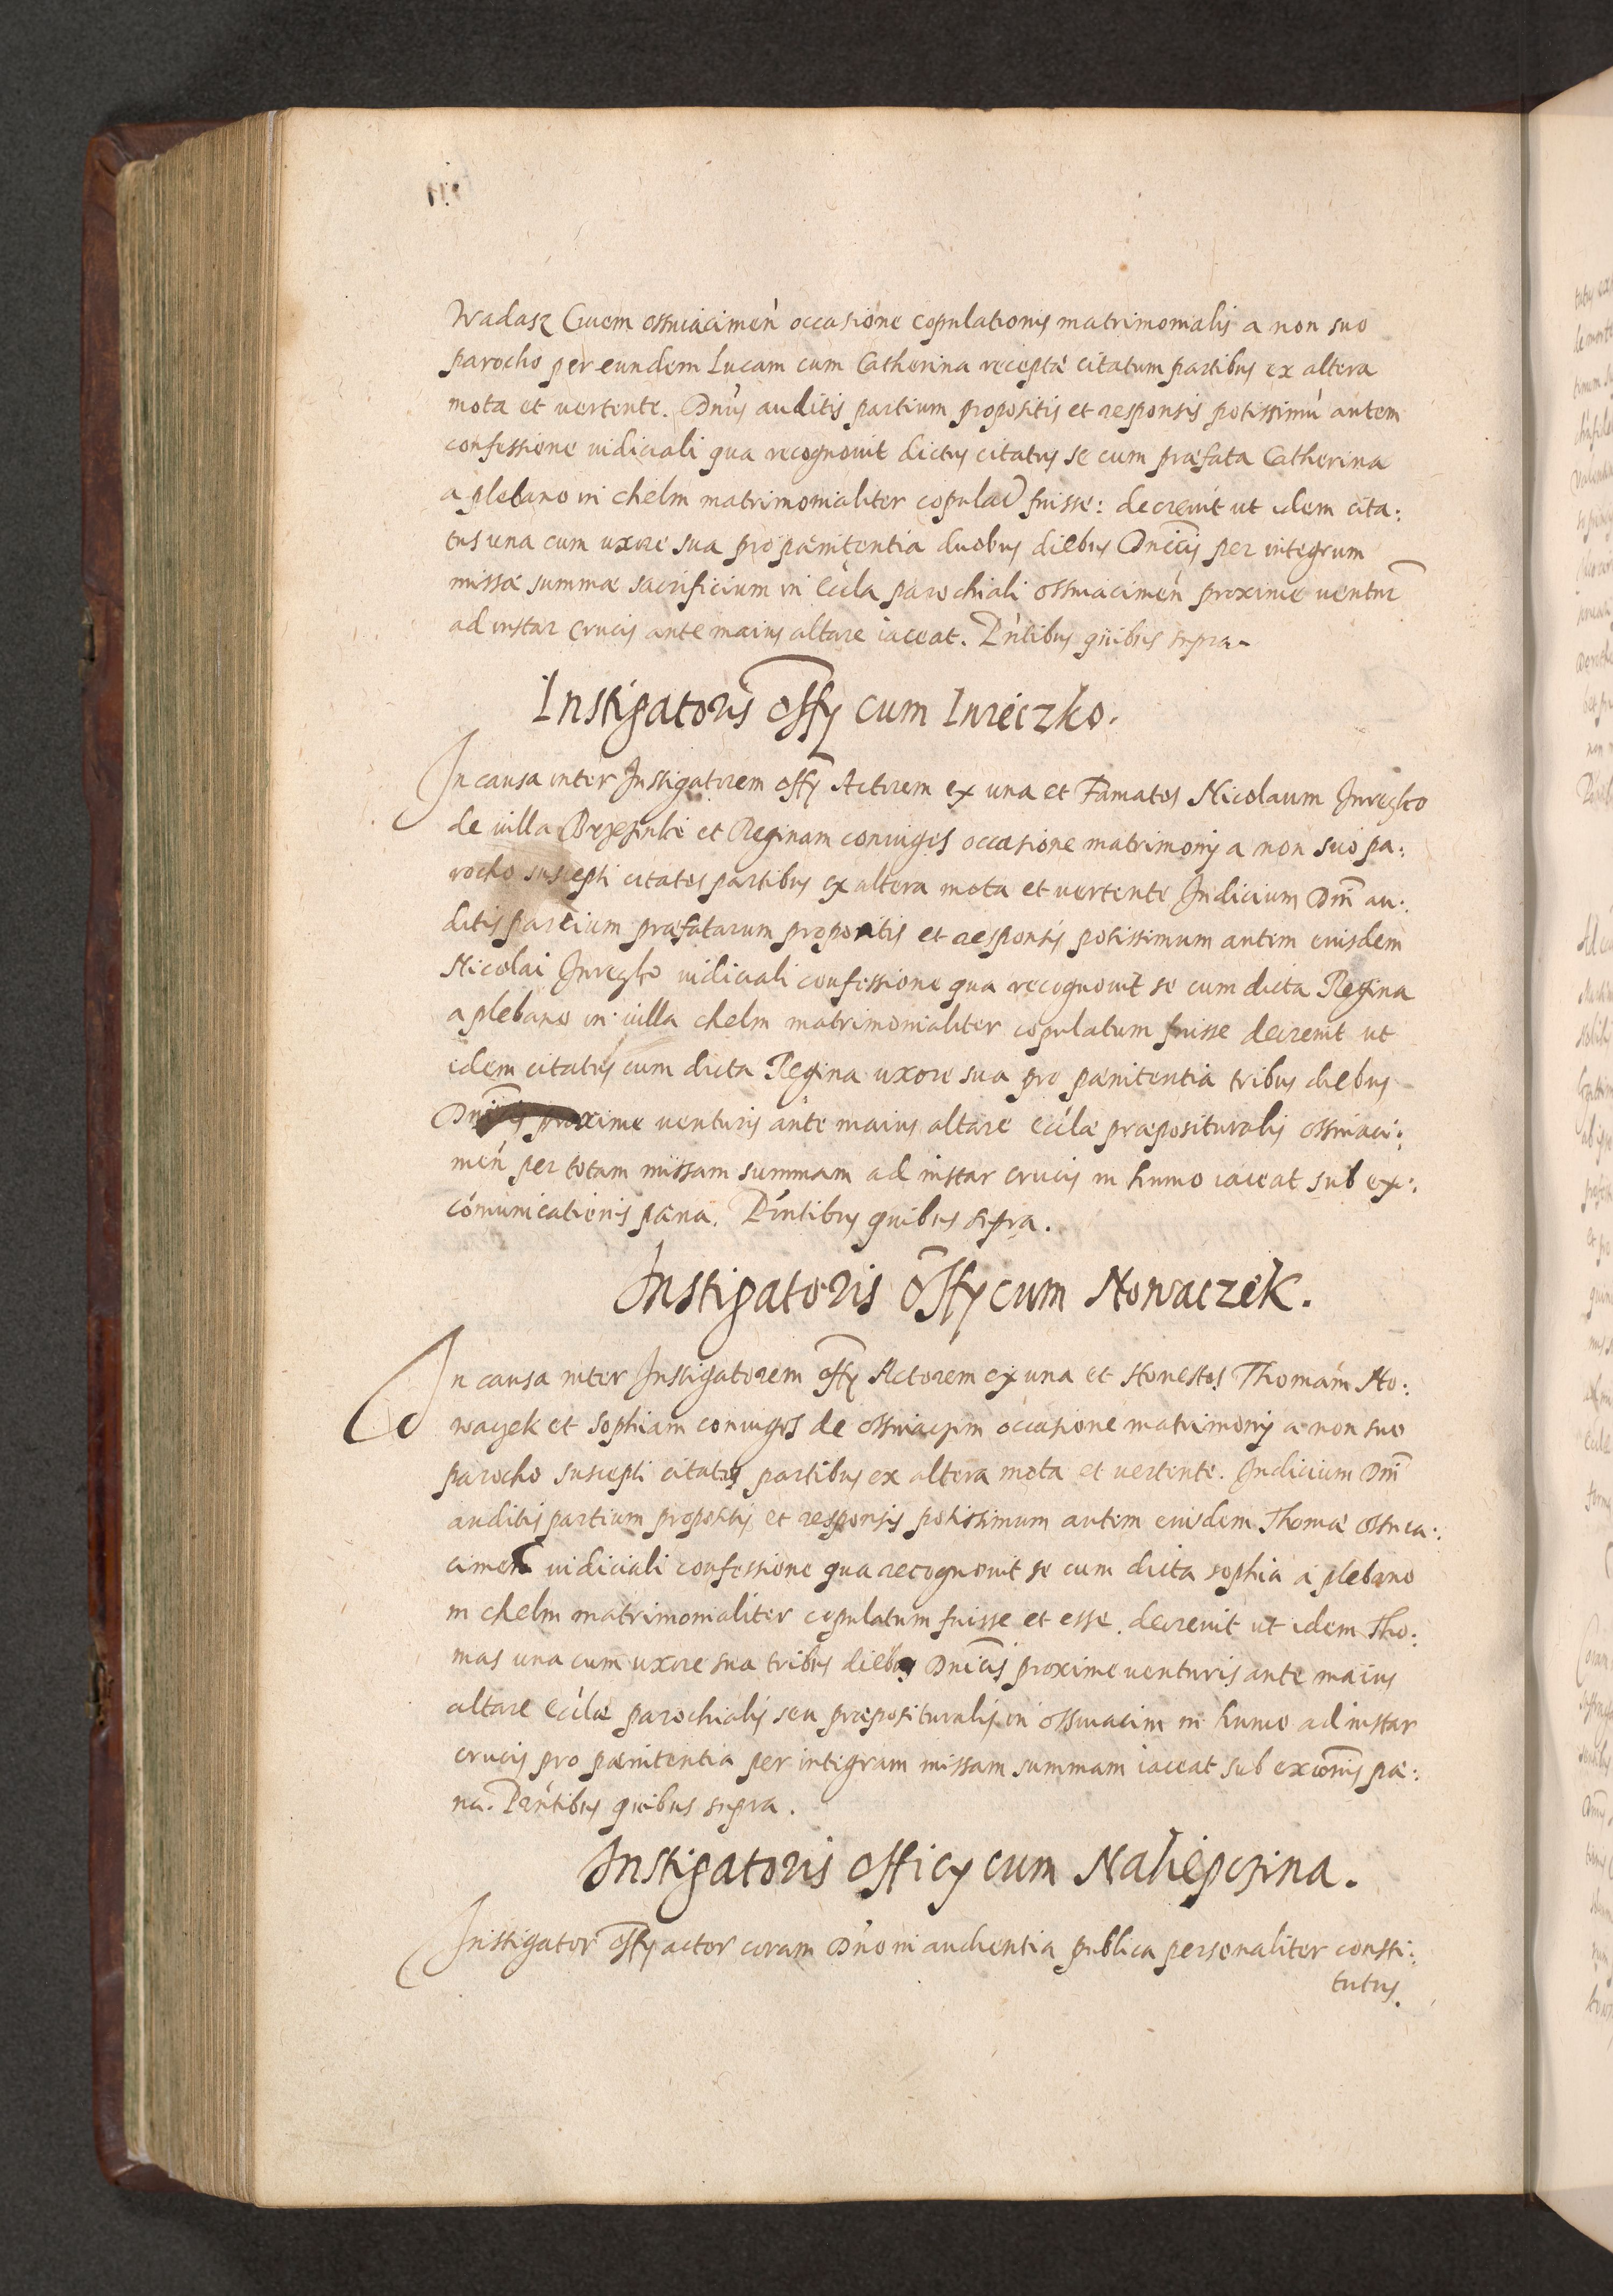 Wadasz Ciuem osswiacimeń occasione copulationis matrimonialis a non suo
parocho per eundem Lucam cum Catherina receptæ citatum partibus ex altera
mota et uertente. Dnus auditis partium propositis et responsis potissimũ autem
confessione iudiciali qua recognouit dictus citatus se cum præfata Catherina
a plebano in chelm matrimonialiter copulat fuisse: decreuit ut idem cita:
tus una cum uxore sua pro pænitentia duobus diebus Dnicis per integrum
missæ summæ sacrificium in Eccla parochiali osswiacimeń proxime uentur
ad instar crucis ante maius altare iaceat. Pntibus quibus supra.
Instigatoris offy cum Iureczko.
In causa inter Instigatorem offy Actorem ex una et Famatos Nicolaum Iureczko
de uilla Brzezinki et Reginam coniuges occasione matrimonij a non suo pa:
rocho suscepti citatos partibus ex altera mota et uertente Iudicium Dni au:
ditis partium præfatarum propositis et responsis potissimum autem eiusdem
Nicolai Iureczko iudiciali confessione qua recognouit se cum dicta Regina
a plebano in uilla chelm matrimonialiter copulatum fuisse decreuit ut
idem citatus cum dicta Regina uxore sua pro pænitentia tribus diebus
Dnicis proxime uenturis ante maius altare ecclæ præposituralis osswiaci:
meń per totam missam summam ad instar crucis in humo iaceat sub ex:
cõmunicationis pæna. Pntibus quibus supra.
Instigatoris offy cum Nowaczek.
In causa inter Instigatorem offy Actorem ex una et Honestos Thomam No:
waczek et Sophiam coniuges de osswiaczim occasione matrimonij a non suo
parocho suscepti citatos partibus ex altera mota et uertente. Iudicium Dni
auditis partium propositis et responsis potissimum autem eiusdem Thomæ osswia:
cimen iudiciali confessione qua recognouit se cum dicta sophia a plebano
in chelm matrimonialiter copulatum fuisse et esse. decreuit ut idem Tho:
mas una cum uxore sua tribus diebus Dnicis proxime uenturis ante maius
altare ecclæ parochialis seu præposituralis in osswiacim in humo ad instar
crucis pro pænitentia per integram missam summam iaceat sub excōnis pæ:
na. Pæntibus quibus supra.
Instigatoris officy cum Naliepczina.
Instigator offy actor coram Dno in audientia publica personaliter consti:
tutus.